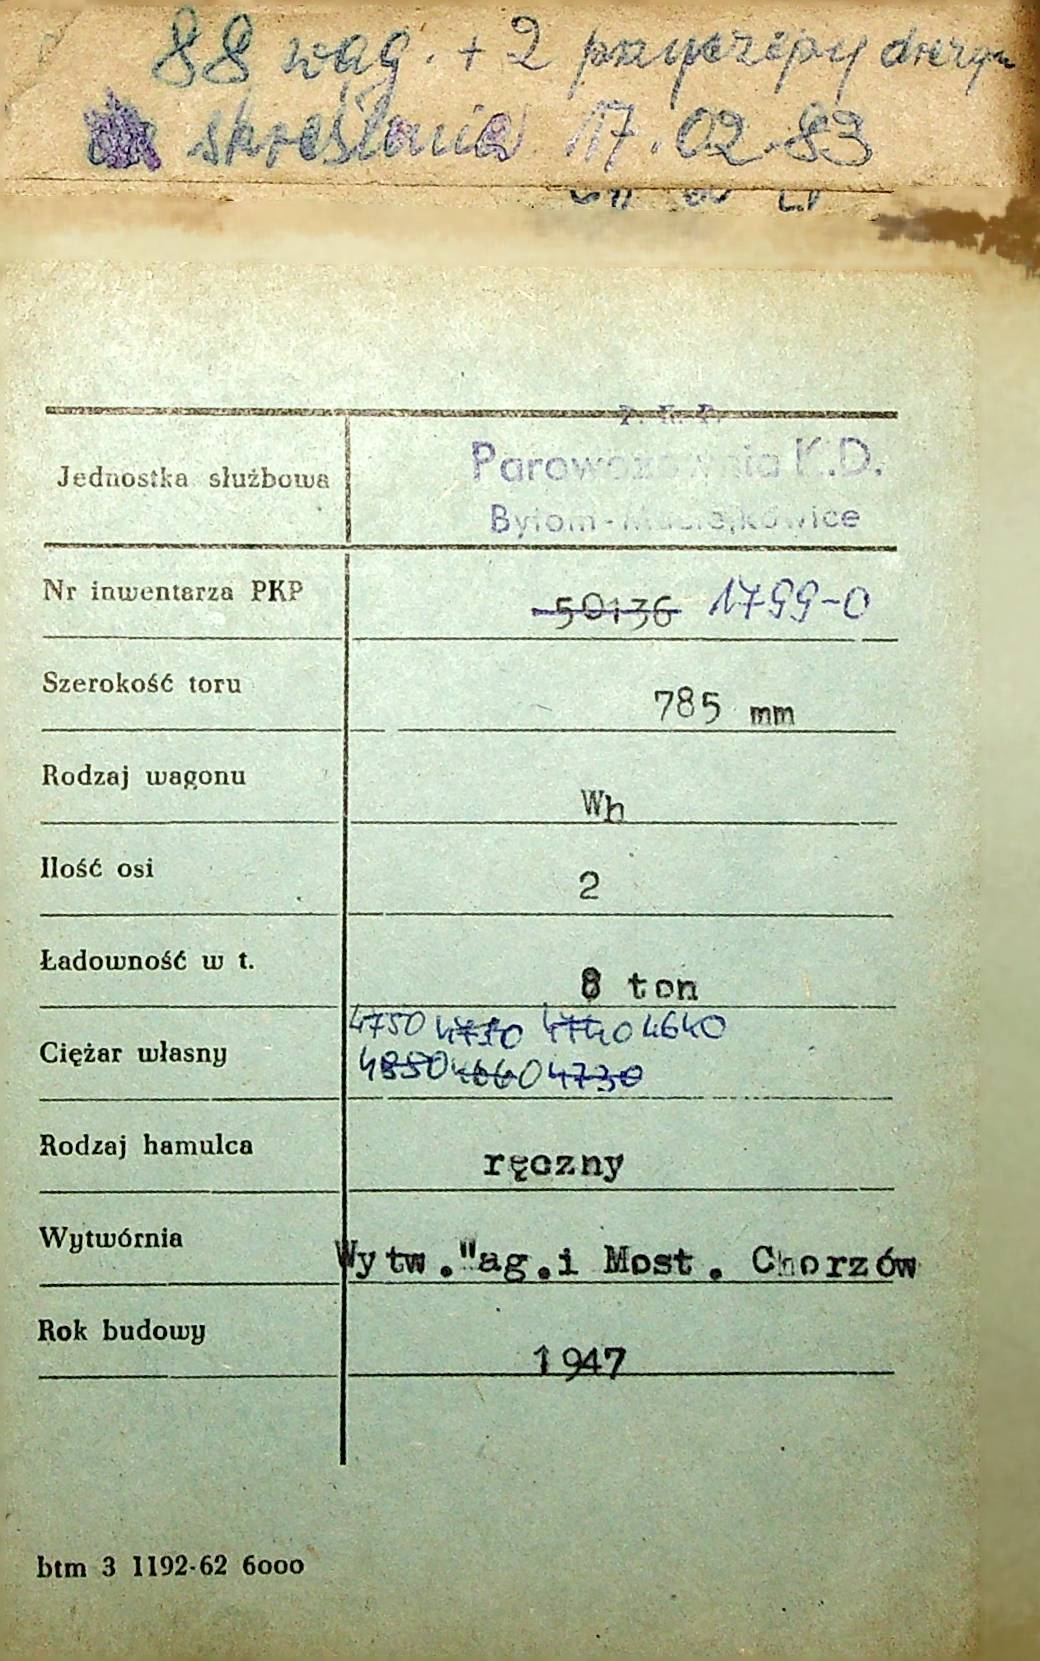 88 wag. + 2 przyczepy drezyn
skreślania 17.02.83
P.K.P.
Jednostka służbowa Parowozownia K.D.
Bytom-Maciejkowice
Nr inwentarza PKP 50136 1799-0
Szerokość toru 785 mm
Rodzaj wagonu Wh
Ilość osi 2
Ładowność w t. 8 ton
4750 4730 4740 4640
Ciężar własny 4850 4660 4730
Rodzaj hamulca ręczny
Wytwórnia Wytw."ag.i Most. Chorzów
Rok budowy 1947
btm 3 1192-62 6000